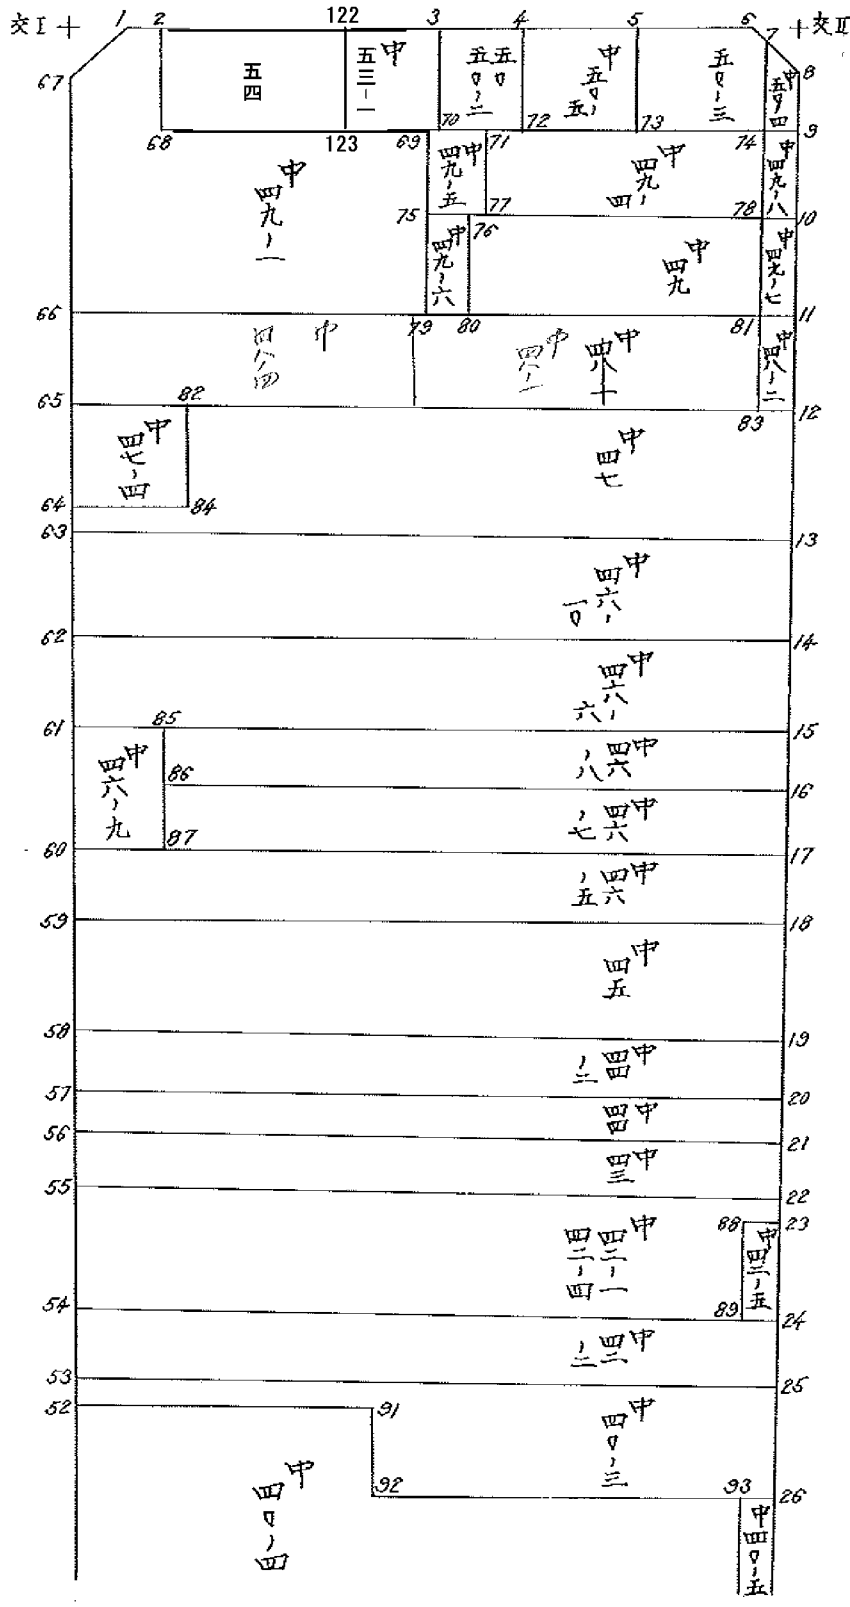 交I 1 2 122 3 4 5 6 7 交II
67 五四 中五三-一 中五〇-二 五〇 中五〇-五 五〇-三 中五〇-四 8
68 123 69 70 72 73 74 9
中四九-一 中四九-五 71 中四九-四 中四九-八
75 77 76 78 10
中四九-六 中四九 中四九-七
66 79 80 81 11
中四八-四 中四八-一 中四八-一 中四八-二
65 82 83 12
中四七-四 中四七
64 84
63 13
中四六-一〇
62 14
中四六-六
61 85 15
中四六-九 中四六-八
86 16
中四六-七
60 87 17
中四六-五
59 18
中四五
58 19
中四四-二
57 20
中四四
56 21
中四三
55 22
88 23
中四二-一 四二-四 中四二-五
54 89 24
中四二-二
53 25
52 91
中四〇-三
92 93 26
中四〇-四 中四〇-五